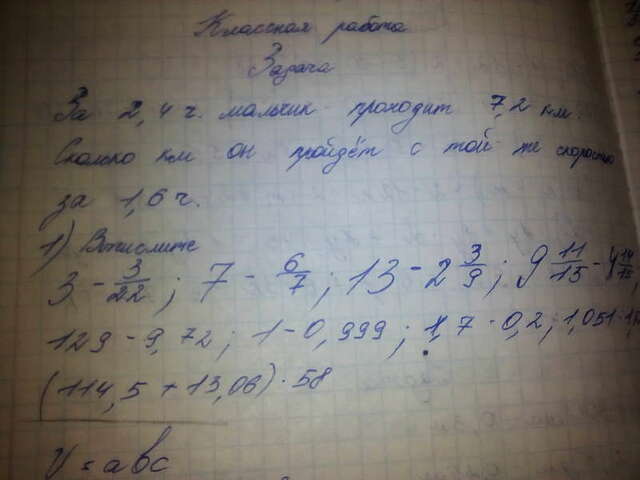 Классная работа
Задача
За 2,4 ч. мальчик проходит 7,2 км.
Сколько км он пройдёт с той же скоростью
за 1,6 ч.
1) Вычислите
3 - 3/22 ; 7 - 6/7 ; 13 - 2 3/9 ; 9 11/15 - 4 14/15
129 - 9,72 ; 1 - 0,999 ; 1,7 · 0,2 ; 1,051 · 1,
(114,5 + 13,06) · 58
V = abc